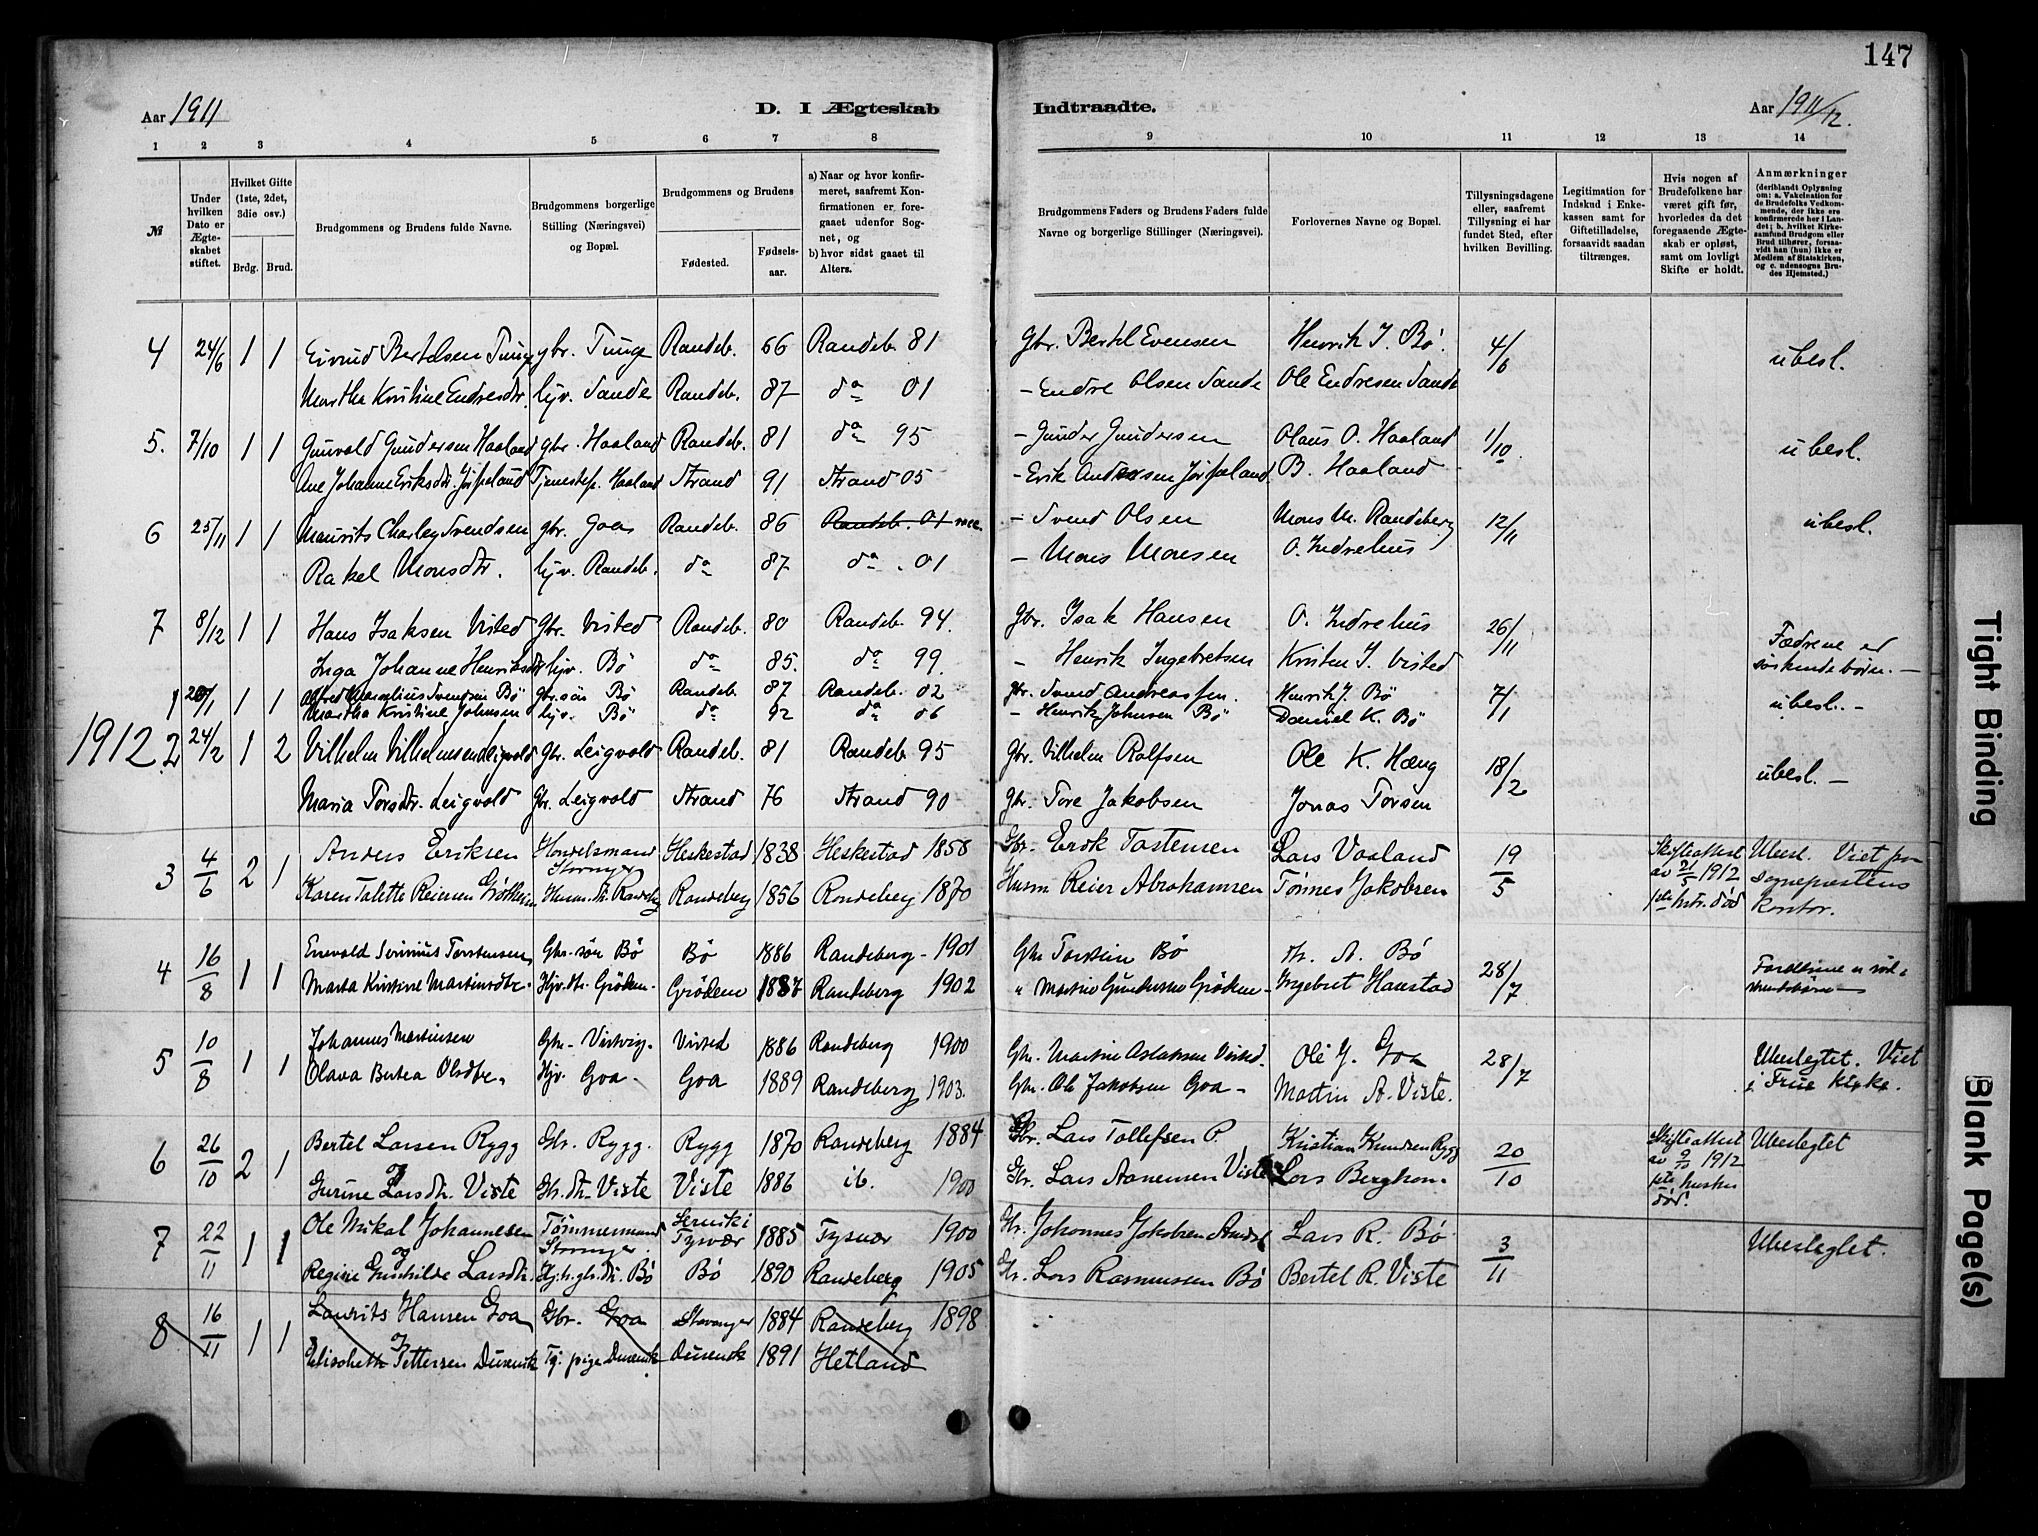 147
Aar 1911
D. I Ægteskab
Indtraadte.
Aar 1911/12.
1 2 3 4 5 6 7 8
9 10 11 12 13 14
№
Under hvilken Dato er Ægteskabet stiftet.
Hvilket Gifte (1ste, 2det, 3die osv.)
Brdg. Brud.
Brudgommens og Brudens fulde Navne.
Brudgommens borgerlige Stilling (Næringsvei) og Bopæl.
Brudgommens og Brudens
Fødested.
Fødselsaar.
a) Naar og hvor konfirmeret, saafremt Konfirmationen er foregaaet udenfor Sognet, og
b) hvor sidst gaaet til Alters.
Brudgommens Faders og Brudens Faders fulde Navne og borgerlige Stillinger (Næringsvei).
Forlovernes Navne og Bopæl.
Tillysningsdagene eller, saafremt Tillysning ei har fundet Sted, efter hvilken Bevilling.
Legitimation for Indskud i Enkekassen samt for Giftetilladelse, forsaavidt saadan tiltrænges.
Hvis nogen af Brudefolkene har været gift før, hvorledes da det foregaaende Ægteskab er opløst, samt om lovligt Skifte er holdt.
Anmærkninger
(deriblandt Oplysning om: a. Vakcination for de Brudefolks Vedkommende, der ikke ere konfirmerede her i Landet; b. hvilket Kirkesamfund Brudgom eller Brud tilhører, forsaavidt han (hun) ikke er Medlem af Statskirken, og c. udensogns Brudes Hjemsted.)
4 24/6 1 1 Eivind Bertelsen Tunge gbr. Tunge Randeb. 66 Randeb. 81 Gbr. Bertel Evensen Henrik J. Bø. 4/6 ubesl.
Martha Kristine Endresdtr. hjv. Sande Randeb. 87 do 01 - Endre Olsen Sande Ole Endresen Sande
5. 7/10 1 1 Gunvald Gundersen Haaland gbr. Haaland Randeb. 81 do 95 - Gunder Gundersen Olaus O. Haaland 1/10. ubesl.
Ane Johanne Eriksdtr. Jørpeland Tjenestep. Haaland Strand 91 Strand 05 - Erik Andersen Jørpeland B. Haaland
6 25/11 1 1 Maurits Charley Svendsen gbr. Goa Randeb. 86 Randeb. 01 - Svend Olsen Mons M. Randeberg 12/11 ubesl.
Rakel Monsdtr. hjv. Randeb. do 87 do . 01 - Mons Monsen O. Indrehus
7 8/12 1 1 Hans Isaksen Visted Gbr. Visted Randeb. 80 Randeb. 94. Gbr. Isak Hansen O. Indrehus 26/11 Fædrene er
Inga Johanne Henriksdtr hjv. Bø do 85. do 99. - Henrik Ingebretsen Kristen J. Visted søskendebørn. -
1 20/1 1 1 Alfred Marselius Svendsen Bø Gbr. søn Bø Randeb. 87 Randeb. 02 gbr. Svend Andreassen. Henrik J. Bø 7/1 ubesl. -
Martha Kristine Johnsen hjv. Bø do 92 do 06 - Henrik Johnsen Bø Daniel K. Bø
1912. 2 24/2 1 2 Vilhelm Vilhelmsen Leigvold Gbr. Leigvold Randeb. 81 Randeb. 95 Gbr. Vilhelm Rolfsen Ole K. Hæng 18/2 ubesl. -
Maria Torsdtr. Leigvold Gbr. Leigvold Strand 76 Strand 90 Gbr. Tore Jakobsen Jonas Torsen
3 4/6 2 1 Anders Eriksen Handelsmand Heskestad 1838 Heskestad 1858 Gbr. Erik Tostensen Lars Vaaland 19/5 Skifteattest Ubesl. Viet paa
Karen Talette Reiersen Randeberg 1856 Randeberg 1870 Husm Reier Abrahamsen Tønnes Jakobsen 1912 sognepræstens
død kontor.
4 16/8 1 1 Enevald Severinius Torstensen Gbr. søn Bø Bø 1886 Randeberg - 1901 Gbr Torstein Bø A. Bø 28/7
Marta Kristine Martinsdtr. Hjv. dtr. Grødem. Grødem 1887 Randeberg 1902 " Martin Gundersen Grødem - Ingebret Harestad
5 10/8 1 1 Johannes Martinsen Gbr. Visted 1886 Randeberg 1900 Gbr. Martin Aslaksen Visted. Ole J. Goa 28/7 Ubeslegtet. Viet
Olava Bertea Olsdtr. Hjv. Goa. Goa 1889 Randeberg 1903. Gbr. Ole Jakobsen Goa - Martin A. Viste. i Frue kirke.
6 26/10 2 1 Bertel Larsen Rygg Gbr. Rygg. Rygg 1870 Randeberg 1884 Gbr. Lars Tollefsen R. Kristian Knudsen Rygg 20/10 Skifteattest Ubeslegtet
og av 9/10 1912
Gurine Larsdtr. Viste Gbr. dtr. Viste Viste 1886 ib. 1900 Gbr. Lars Aanensen Viste Lars Berghom. død.
7 22/11 1 1 Ole Mikal Johannesen Tømmermand Tysvær 1885 Tysvær 1900 Gbr. Johannes Jakobsen Lars R. Bø 3/11 Ubeslegtet.
og
Regine Gunhilde Larsdtr. Bø Bø 1890 Randeberg 1905 Gbr. Lars Rasmussen Bø Bertel R. Viste
8 16/11 1 1 Laurits Hansen Goa Gbr. Goa Stavanger 1884 Randeberg 1898
og
Elisabeth Pettersen Dusevik Tj. pige Dusevik Dusevik 1891 Hetland
Tight Binding
Blank Page(s)